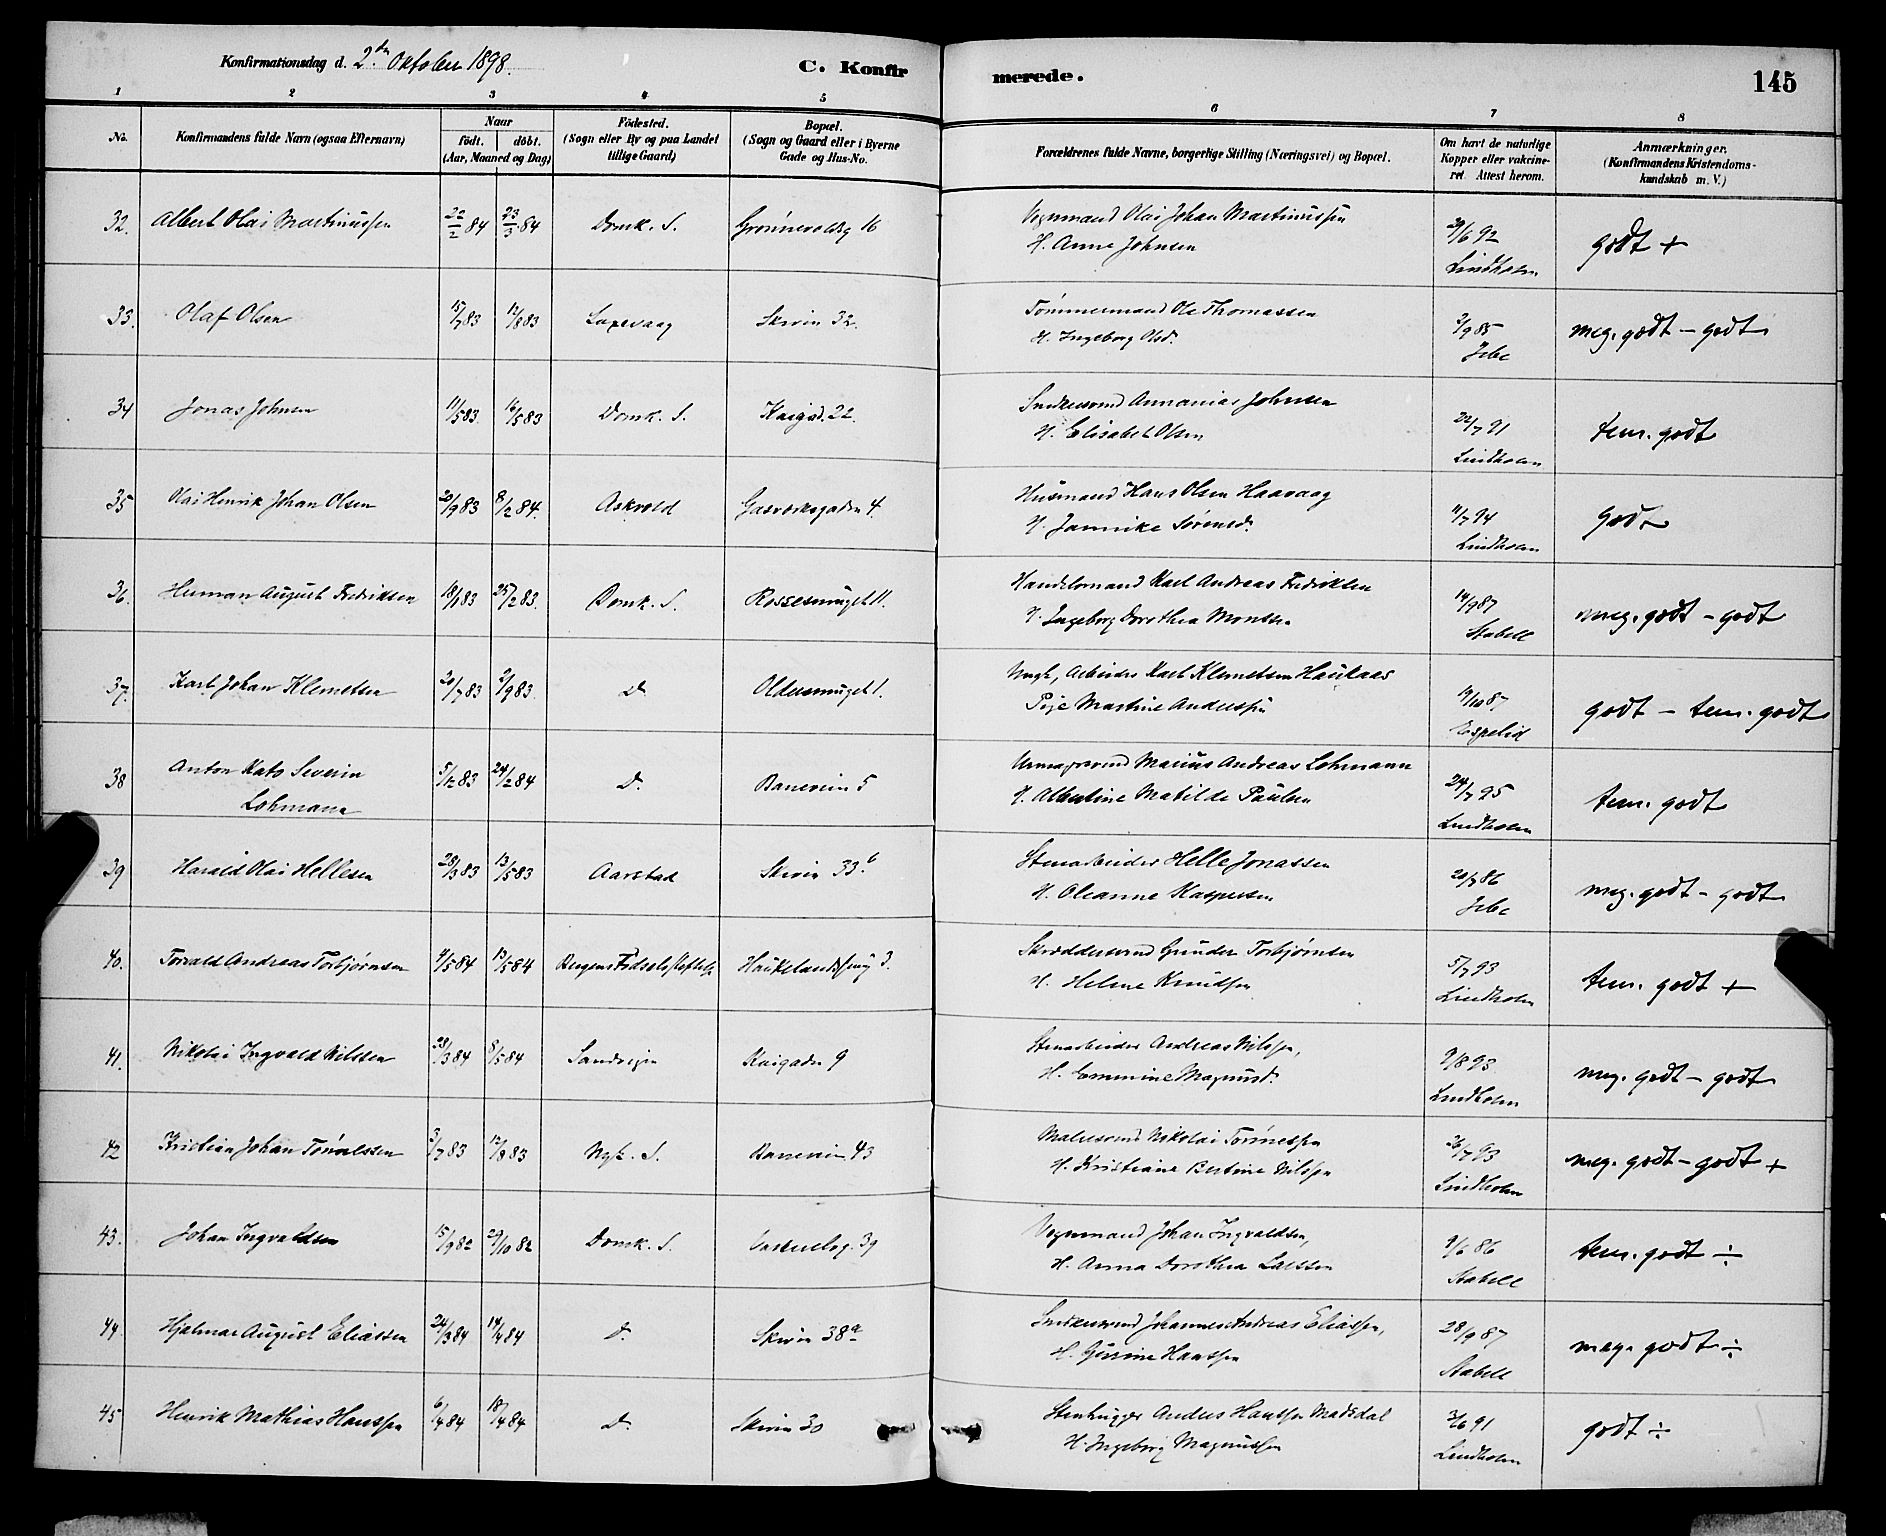 Konfirmationsdag d. 2den Oktober 1898. C. Konfirmerede. 145
1 2 3 4 5 6 7 8
No. Konfirmandens fulde Navn (ogsaa Efternavn) Naar födt. döbt. (Aar, Maaned og Dag) Födested. (Sogn eller By og paa Landet tillige Gaard) Bopæl. (Sogn og Gaard eller i Byerne Gade og Hus-No. Forældrenes fulde Navne, borgerlige Stilling (Næringsvei) og Bopæl. Om havt de naturlige Kopper eller vakcineret. Attest herom. Anmærkninger. (Konfirmandens Kristendomskundskab m. V.)
32. Albert Olai Martinussen 22/2 84 23/3 84 Domk. S. 16 Vognmand Olai Johan Martinussen 6 92 godt +
H. Anne Johnsen Lindholm
33. Olaf Olsen 15/7 83 12/8 83 Laxevaag Skivin 32. Tömmermand Ole Thomassen 2/9 85 meg. godt - godt
H. Ingeborg Olsd. Jebe
34 Jonas Johnsen 11/5 83. 16/5 83 Domk. S. Kaigd. 22. Snikkersvend Annanias Johnsen 22/7 91 tem. godt
H. Elisabet Olsen Lindholm
35 Olai Henrik Johan Olsen 20/9 83 8/2 84. Askvold Gasverksgaden 4. Husmand Hans Olsen Haavaag 11/7 94 godt
H. Jannike Sørensd. Lindholm
36. Herman August Fredriksen 18/1 83 25/2 83. Domk. S. Rossesmuget 11. Handelsmand Karl Andreas Fredriksen 14/9 87 meg. godt - godt
H. Ingeborg Dorothea Monsen Stabell
37. Karl Johan Klemetsen 20/7 83 2/9 83. D. Oldersmuget 1. Ungk, Arbeider Karl Klemetsen Haukaas 19/10 87 godt - tem. godt
Pige Martine Anderssen Espelid
38 Anton Kato Severin 5/12 83 24/2 84 D. Baneveien 5 Urmagersvend Marius Andreas Lohmann 24/7 95 tem. godt
Lohmann H. Albertine Matilde Paulsen Lindholm
39 Harald Olai Hellesen 28/3 83 13/5 83 Aarstad Skivin 33.b Stenarbeider Helle Jonassen 20/7 86 meg. godt - godt
H. Oleanne Kaspersen Jebe
40. Torvald Andreas Torbjørnsen 4/5 84 13/5 84 Bergens Fødselsstiftelse 3. Skräddersvend Gunder Torbjørnsen 5/7 93 tem. godt +
H. Helene Knudsen Lindholm
41. Nikolai Ingvald Nilssen 23/3 84 8/5 84 Sandvigen Kaigaden 9 Stenarbeider Andreas Nilssen, 9/8 93 meg. godt - godt
H. Emmine Magnusd. Lindholm
42 Kristian Johan Tønnessen 3/7 83 12/8 83 Nyk. S. Baneveien 43 Malersvend Nikolai Tønnessen 26/7 93 meg. godt - godt +
H. Kristiane Bertine Nilssen Lindholm
43. Johan Ingvaldsen 15/9 82 29/10 82 Domk. S. 39 Vognmand Johan Ingvaldsen, 9/6 86 tem. godt ÷
H. Anna Dorothea Larssen Stabell
44. Hjalmar August Eliassen 24/3 84 14/4 84 D. Skivin 38a Snikkersvend Johannes Andreas Eliassen, 28/9 87 meg. godt ÷
H. Gurine Hanssen Stabell
45 Henrik Mathias Hanssen 6/4 84 18/4 84 D. Skivin 30 Stenhugger Anders Hanssen Madsdal 3/6 91 godt ÷
H. Ingeborg Magnussen Lindholm